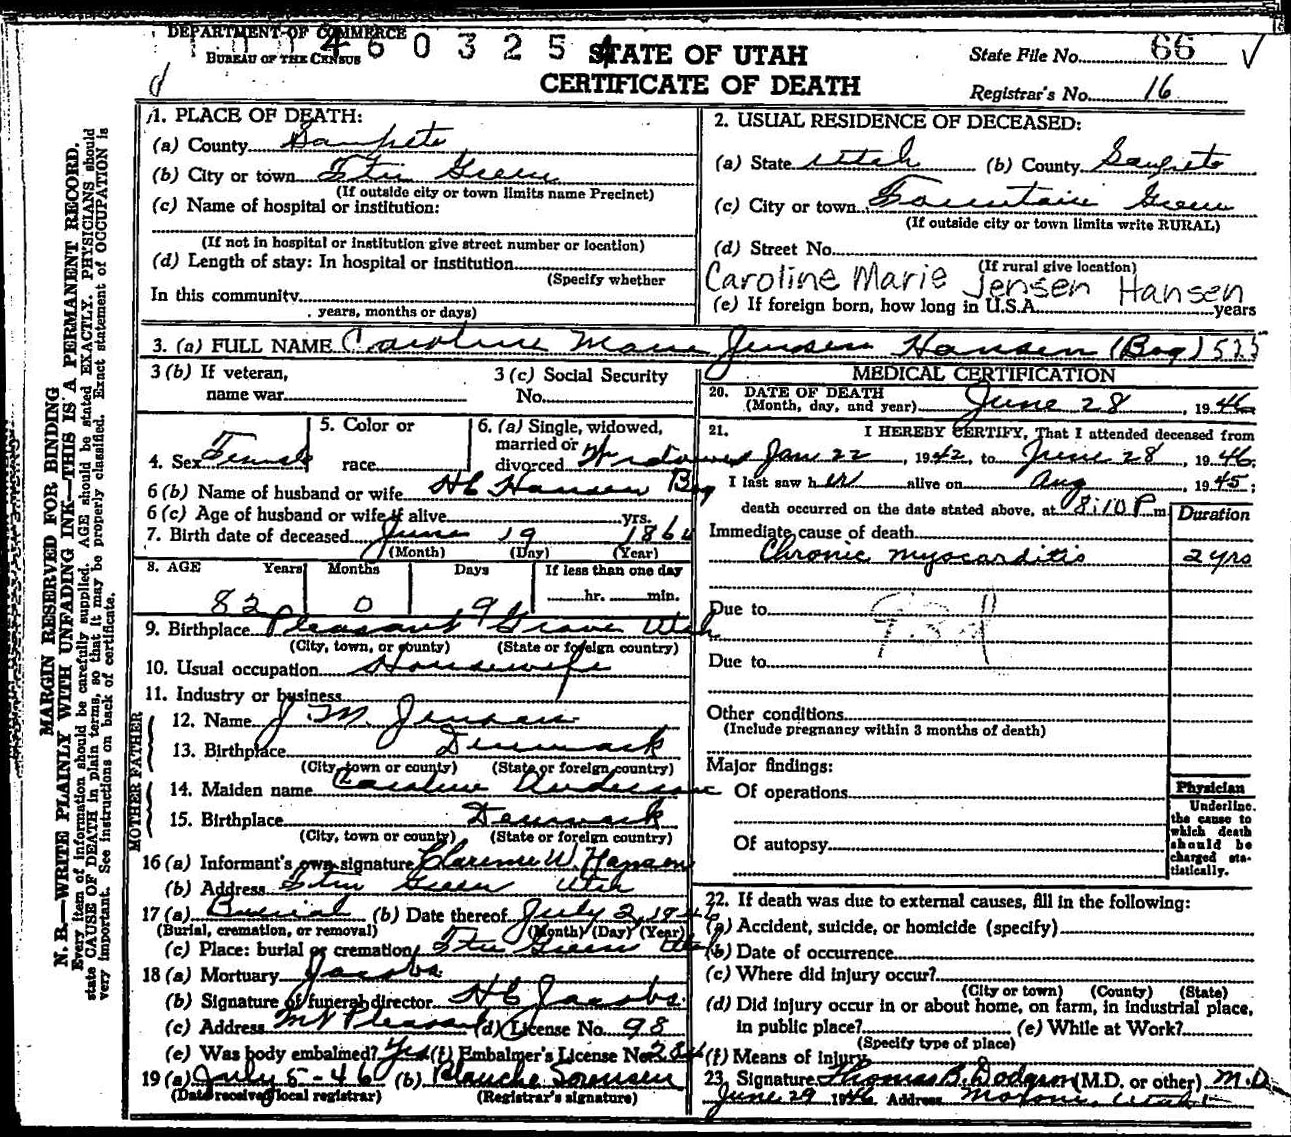 DEPARTMENT OF COMMERCE
BUREAU OF THE CENSUS
1 0 0 4 6 0 3 2 5 4
STATE OF UTAH
CERTIFICATE OF DEATH
State File No. 66
Registrar's No. 16
MARGIN RESERVED FOR BINDING
N. B.—WRITE PLAINLY WITH UNFADING INK—THIS IS A PERMANENT RECORD.
Every item of information should be carefully supplied. AGE should be stated EXACTLY. PHYSICIANS should
state CAUSE OF DEATH in plain terms, so that it may be properly classified. Exact statement of OCCUPATION is
very important. See instructions on back of certificate.
1. PLACE OF DEATH:
(a) County Sanpete
(b) City or town Ftn Green
(If outside city or town limits name Precinct)
(c) Name of hospital or institution:
(If not in hospital or institution give street number or location)
(d) Length of stay: In hospital or institution
(Specify whether
In this community
years, months or days)
2. USUAL RESIDENCE OF DECEASED:
(a) State Utah (b) County Sanpete
(c) City or town Fountain Green
(If outside city or town limits write RURAL)
(d) Street No.
(If rural give location)
Caroline Marie Jensen Hansen
(e) If foreign born, how long in U.S.A. years
3. (a) FULL NAME Caroline Marie Jensen Hansen (Bog) 525
3 (b) If veteran,
name war
3 (c) Social Security
No.
4. Sex Female
5. Color or
race
6. (a) Single, widowed,
married or
divorced Widowed
6 (b) Name of husband or wife HC Hansen Bog
6 (c) Age of husband or wife if alive yrs.
7. Birth date of deceased June 19 1864
(Month) (Day) (Year)
8. AGE Years Months Days If less than one day
82 0 9 hr. min.
9. Birthplace Pleasant Grove Utah
(City, town, or county) (State or foreign country)
10. Usual occupation Housewife
11. Industry or business
FATHER
12. Name J. M. Jensen
13. Birthplace Denmark
(City, town or county) (State or foreign country)
MOTHER
14. Maiden name Caroline Anderson
15. Birthplace Denmark
(City, town or county) (State or foreign country)
16 (a) Informant's own signature Clarence W. Hansen
(b) Address Ftn Green Utah
17 (a) Burial (b) Date thereof July 2, 1946
(Burial, cremation, or removal) (Month) (Day) (Year)
(c) Place: burial or cremation Ftn Green Utah
18 (a) Mortuary Jacobs
(b) Signature of funeral director HC Jacobs
(c) Address Mt Pleasant (d) License No. 98
(e) Was body embalmed? Yes (f) Embalmer's License No.
19 (a) July 5-46 (b) Blanche Sorensen
(Date received local registrar) (Registrar's signature)
MEDICAL CERTIFICATION
20. DATE OF DEATH
(Month, day, and year) June 28, 1946
21. I HEREBY CERTIFY, That I attended deceased from
Jan 22, 1942, to June 28, 1946;
I last saw her alive on Aug, 1945;
death occurred on the date stated above, at 8:10 P m
Duration
Immediate cause of death
Chronic myocarditis 2 yrs
Due to 93d
Due to
Other conditions
(Include pregnancy within 3 months of death)
Major findings:
Of operations
Of autopsy
Physician
Underline
the cause to
which death
should be
charged sta-
tistically.
22. If death was due to external causes, fill in the following:
(a) Accident, suicide, or homicide (specify)
(b) Date of occurrence
(c) Where did injury occur?
(City or town) (County) (State)
(d) Did injury occur in or about home, on farm, in industrial place,
in public place? (e) While at Work?
(Specify type of place)
(f) Means of injury
23. Signature Thomas B. Dodgson (M.D. or other) M.D.
June 29 1946 Address Moroni, Utah